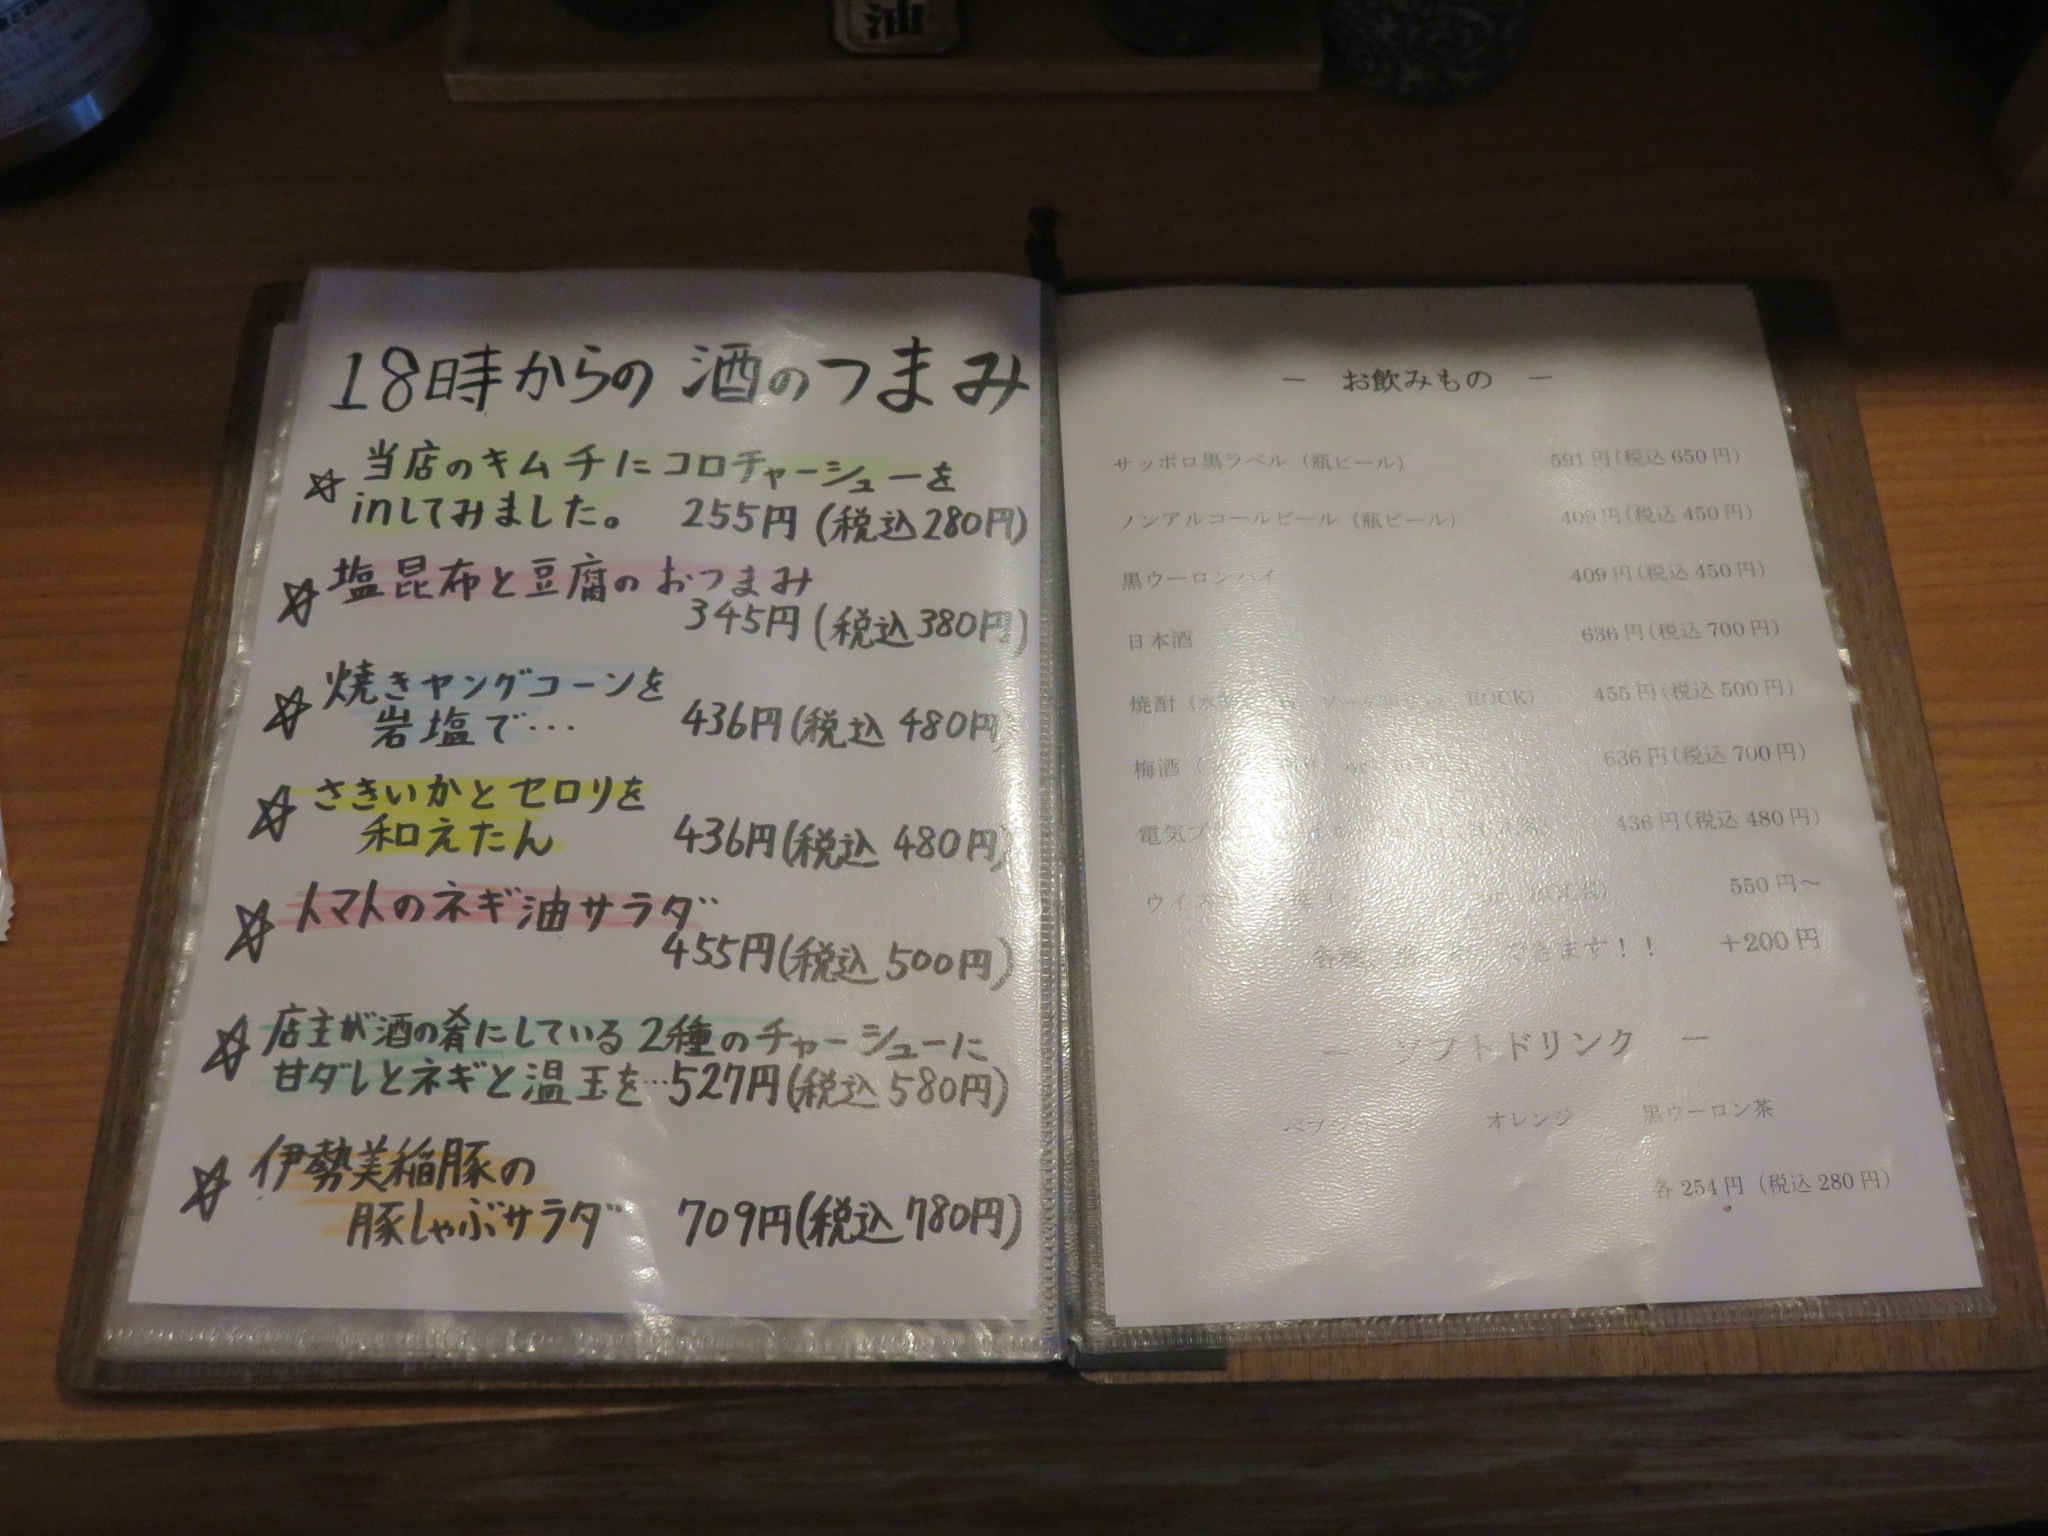 油
18時からの 酒のつまみ
☆ 当店のキムチにコロチャーシューを
inしてみました。 255円 (税込280円)
☆ 塩昆布と豆腐のおつまみ
345円 (税込380円)
☆ 焼きヤングコーンを
岩塩で… 436円(税込 480円)
☆ さきいかとセロリを
和えたん 436円(税込 480円)
☆ トマトのネギ油サラダ
455円(税込 500円)
☆ 店主が酒の肴にしている2種のチャーシューに
甘ダレとネギと温玉を…527円(税込 580円)
☆ 伊勢美稲豚の
豚しゃぶサラダ 709円(税込 780円)
― お飲みもの ―
サッポロ黒ラベル (瓶ビール) 591円(税込650円)
ノンアルコールビール (瓶ビール) 409円(税込450円)
黒ウーロンハイ 409円(税込450円)
日本酒 636円(税込700円)
焼酎 ROCK) 455円(税込500円)
梅酒 636円(税込700円)
電気ブ 436円(税込480円)
ウイス ROCK) 550円～
できます！！ ＋200円
― ソフトドリンク ―
オレンジ 黒ウーロン茶
各254円 (税込280円)